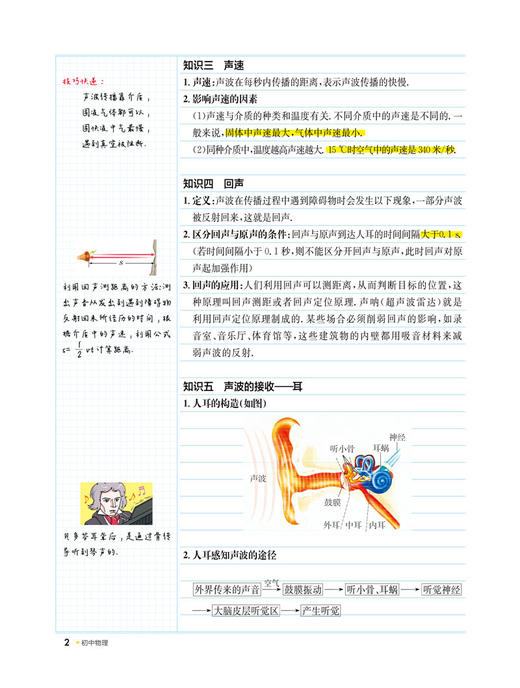 知识三 声速
技巧快递：
声波传播靠介质，
固液气体都可以，
固快液中气最慢，
遇到真空被阻断.
1. 声速：声波在每秒内传播的距离，表示声波传播的快慢.
2. 影响声速的因素
（1）声速与介质的种类和温度有关. 不同介质中的声速是不同的. 一
般来说，固体中声速最大，气体中声速最小.
（2）同种介质中，温度越高声速越大. 15 ℃时空气中的声速是 340 米/秒.
知识四 回声
1. 定义：声波在传播过程中遇到障碍物时会发生以下现象，一部分声波
被反射回来，这就是回声.
2. 区分回声与原声的条件：回声与原声到达人耳的时间间隔大于0.1 s.
（若时间间隔小于 0.1 秒，则不能区分开回声与原声，此时回声对原
声起加强作用）
3. 回声的应用：人们利用回声可以测距离，从而判断目标的位置，这
种原理叫回声测距或者回声定位原理. 声呐（超声波雷达）就是
利用回声定位原理制成的. 某些场合必须削弱回声的影响，如录
音室、音乐厅、体育馆等，这些建筑物的内壁都用吸音材料来减
弱声波的反射.
s
利用回声测距离的方法：测
出声音从发出到遇到障碍物
反射回来所经历的时间，根
据介质中的声速，利用公式
s= 1/2 vt计算距离.
知识五 声波的接收——耳
1. 人耳的构造（如图）
神经
听小骨 耳蜗
声波
鼓膜
外耳 中耳 内耳
贝多芬耳聋后，是通过骨传
导听到琴声的.
2. 人耳感知声波的途径
外界传来的声音 空气→ 鼓膜振动 → 听小骨、耳蜗 → 听觉神经
→ 大脑皮层听觉区 → 产生听觉
2 初中物理